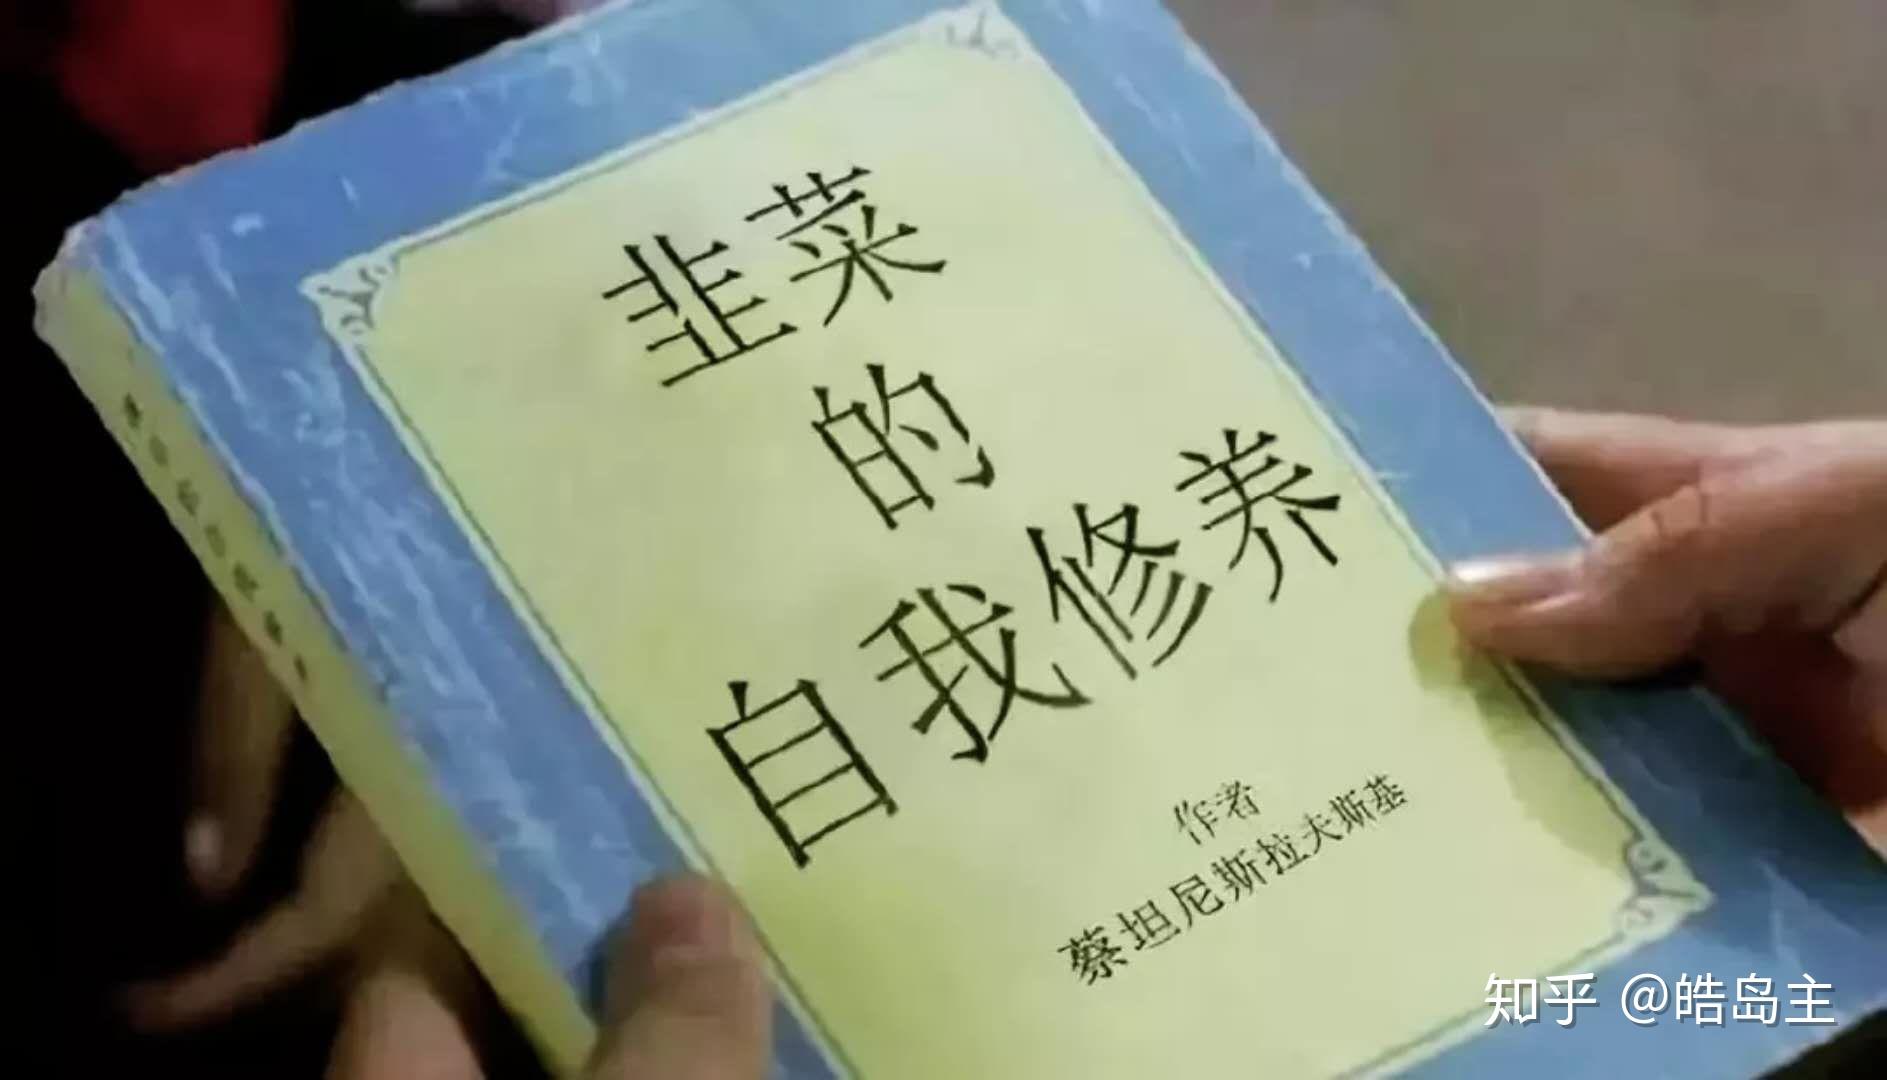 韭菜
的
自我修养
作者
蔡坦尼斯拉夫斯基
知乎 @皓岛主